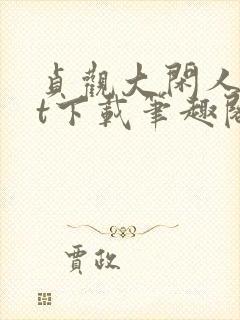 貞觀大閑人
t下載筆趣閣
賈政